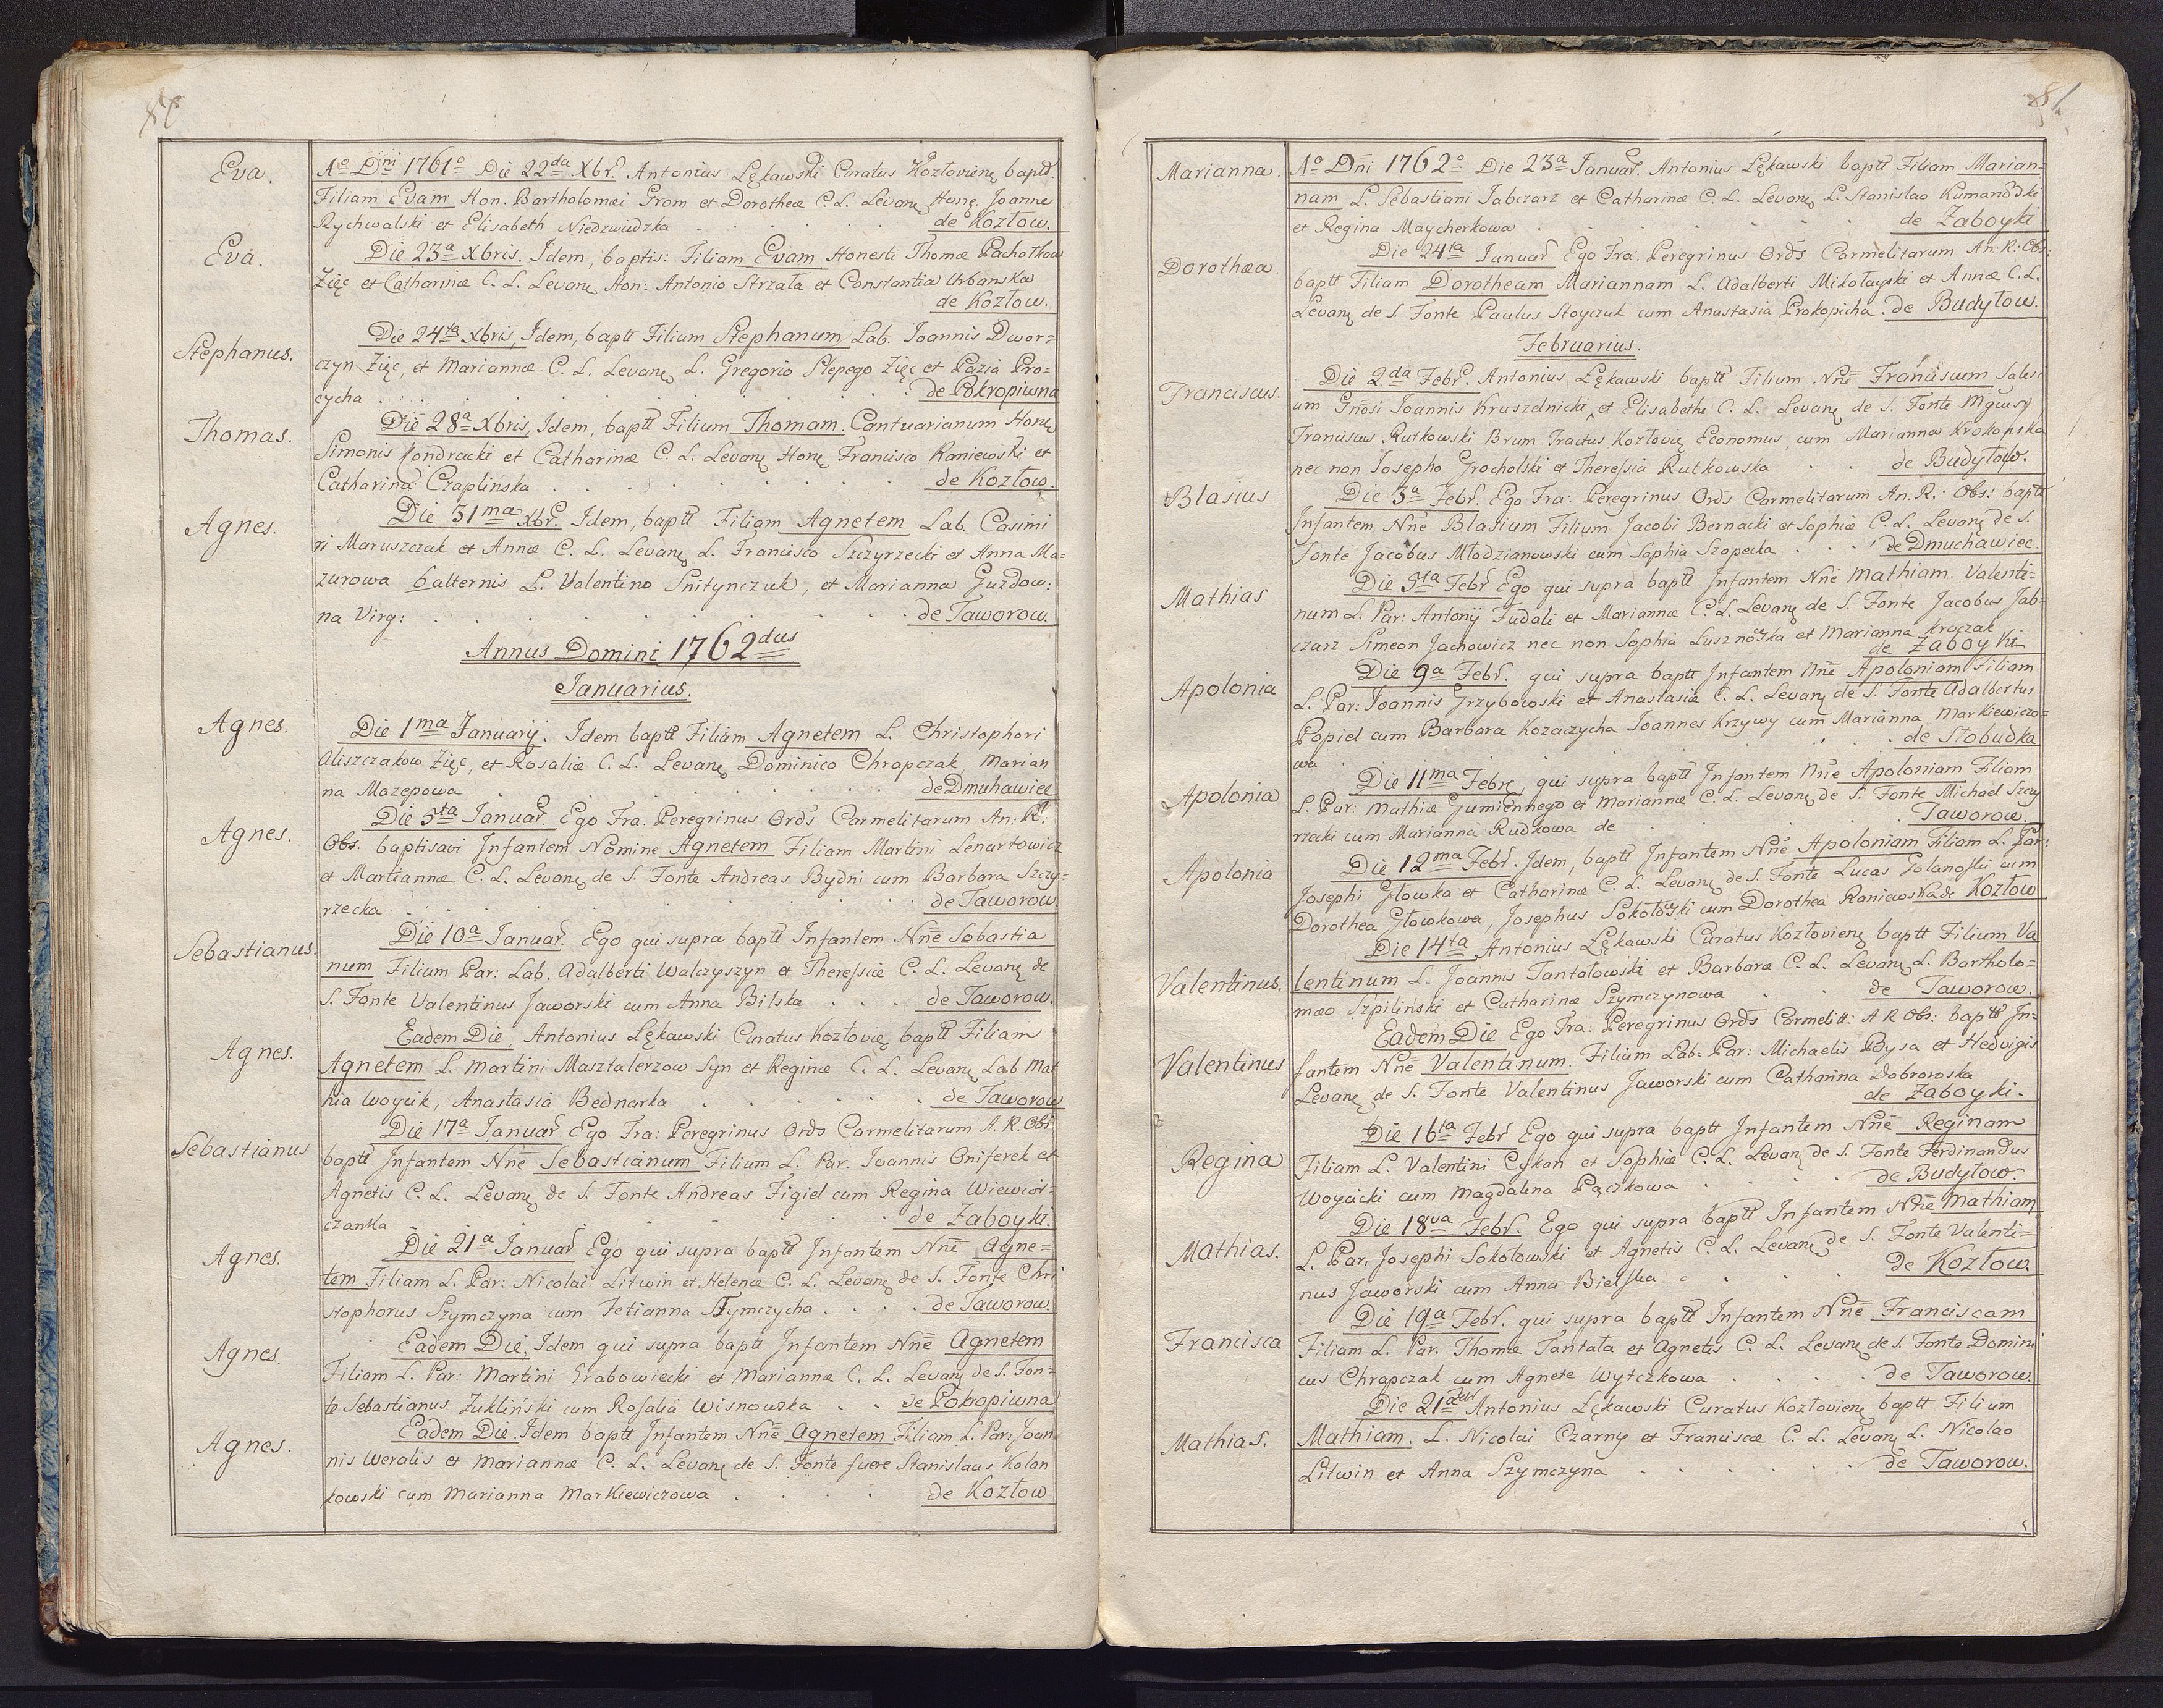 Eva.
Aº Dni 1761º Die 22da Xbr. Antonius Łękawski Curatus Kozłovienę baptt.
Filiam Evam Hon. Bartholomæi Grom et Dorotheæ C. L. Levanę Honę. Joanne
Rychwalski et Elisabeth Niedzwiedzka . . . . . de Kozłow.
Eva.
Die 23a Xbris. Idem, baptis: Filiam Evam Honesti Thomæ Pachołkow
Zięć et Catharinæ C. L. Levanę Hon: Antonio Strzała et Constantia Urbanska
de Kozłow.
Stephanus.
Die 24ta Xbris, Idem, baptt Filium Stephanum Lab. Joannis Dwor=
czyn Zięć, et Mariannæ C. L. Levanę L. Gregorio Slepego Zięć et Pazia Pro=
cycha . . . . . . . . de Pokropiwna
Thomas.
Die 28a Xbris, Idem, baptt Filium Thomam. Cantuarianum Honę
Simonis Jondracki et Catharinæ C. L. Levanę Honę Francisco Raniewski et
Catharina Czaplinska . . . . . . . . de Kozłow.
Agnes.
Die 31ma Xbr. Idem, baptt Filiam Agnetem Lab. Casimi
ri Maruszczak et Annæ C. L. Levanę L. Francisco Szczyrzecki et Anna Ma=
zurowa balternis L. Valentino Snitynczuk, et Marianna Guzdow:
na Virg: . . . . . . . de Taworow.
Annus Domini 1762dus
Januarius.
Agnes.
Die 1ma Januarij. Idem baptt Filiam Agnetem L. Christophori
Aliszczakow Zięć, et Rosaliæ C. L. Levanę Dominico Chrapczak Marian
na Mazepowa . . . . . . . . . de Dmuhawiec
Agnes.
Die 5ta Januar. Ego Fra. Peregrinus Ords Carmelitarum An: R:
Obs. baptisavi Infantem Nomine Agnetem Filiam Martini Lenartowicz
et Martiannæ C. L. Levanę de S. Fonte Andreas Bydni cum Barbara Szczy=
rzecka . . . . . . . . . de Taworow
Sebastianus.
Die 10a Januar. Ego qui supra baptt Infantem Nñe Sebastia
num Filium Par: Lab. Adalberti Walczyszyn et Theressiæ C. L. Levanę de
S. Fonte Valentinus Jaworski cum Anna Bilska . . . de Taworow.
Agnes.
Eadem Die, Antonius Łękawski Curatus Kozłovię baptt Filiam
Agnetem L. Martini Masztalerzow Syn et Reginæ C. L. Levanę Lab Mat
hia Woycik, Anastasia Bednarka . . . . . . de Taworow
Sebastianus
Die 17a Januar Ego Fra: Peregrinus Ords Carmelitarum A. R. Obs
baptt Infantem Nñe Sebastianum Filium L. Par. Joannis Oniferek et
Agnetis C. L. Levanę de S. Fonte Andreas Figiel cum Regina Wiewior=
czanka . . . . . . . . de Zaboyki.
Agnes.
Die 21a Januar Ego qui supra baptt Infantem Nñe Agne=
tem Filiam L. Par: Nicolai Litwin et Helenæ C. L. Levanę de S. Fonte Chri
stophorus Szymczyna cum Tetianna Tymczycha . . . . de Taworow.
Agnes.
Eadem Die, Idem qui supra baptt Infantem Nñe Agnetem
Filiam L. Par: Martini Grabowiecki et Mariannæ C. L. Levanę de S. Fon=
te Sebastianus Zukliński cum Rosalia Wisnowska . . de Pokopiwna
Agnes.
Eadem Die. Idem baptt Infantem Nñe Agnetem Filiam L. Par: Joan
nis Weralis et Mariannæ C. L. Levanę de S. Fonte fuere Stanislaus Kolan
kowski cum Marianna Markiewiczowa . . . . de Kozłow
81
Marianna.
Aº Dni 1762º Die 23a Januar. Antonius Łękawski baptt Filiam Marian=
nam L. Sebastiani Jabczarz et Catharinæ C. L. Levanę L. Stanislao Kumandski
et Regina Maycherkowa . . . . . . de Zaboyki
Dorothæa.
Die 24ta Januar Ego Fra: Peregrinus Ords Carmelitarum An: R: Obs:
baptt Filiam Dorotheam Mariannam L. Adalberti Mikołayski et Annæ C. L.
Levanę de S. Fonte Paulus Stoyczuk cum Anastasia Prokopicha. de Budyłow.
Februarius.
Franciscus.
Die 2da Febr. Antonius Łękawski baptt Filium Nñe Franciscum Salesi
um Gnosi Joannis Kruszelnicki, et Elisabethæ C. L. Levanę de S. Fonte
Franciscus Rutkowski Brum Tractus Kozłovię Economus, cum Marianna Krokopska
nec non Josepho Grocholski et Theressia Rutkowska . . de Budyłow.
Blasius
Die 3a Febr. Ego Fra: Peregrinus Ords Carmelitarum An: R: Obs: baptt
Infantem Nñe Blasium Filium Jacobi Bernacki et Sophiæ C. L. Levanę de S.
Fonte Jacobus Młodzianowski cum Sophia Szopecka . . . de Dmuchawiec.
Mathias
Die 5ta Febr Ego qui supra baptt Infantem Nñe Mathiam. Valenti=
num L. Par: Antonij Fudali et Mariannæ C. L. Levanę de S. Fonte Jacobus Jab=
czarz Simeon Jachowicz nec non Sophia Lusznoska et Marianna Kroczak
de Zaboyki
Apolonia
Die 9a Febr. qui supra baptt Infantem Nñe Apoloniam Filiam
L. Par: Joannis Grzybowski et Anastasiæ C. L. Levanę de S. Fonte Adalbertus
Popiel cum Barbara Kozaczycha Joannes Krzywy cum Marianna Markiewiczo=
wa . . . . . . . de Słobudka
Apolonia
Die 11ma Febrę qui supra baptt Infantem Nñe Apoloniam Filiam
L. Par: Mathiæ Gumiennego et Mariannæ C. L. Levanę de S. Fonte Michael Szczy
rzecki cum Marianna Rudkowa de . . . . . Taworow.
Apolonia
Die 12ma Febr. Idem, baptt Infantem Nñe Apoloniam Filiam L. Par:
Josephi Głowka et Catharinæ C. L. Levanę de S. Fonte Lucas Golanoski cum
Dorothea Głowkowa, Josephus Sokołoski cum Dorothea Raniewska de Kozłow
Valentinus.
Die 14ta Antonius Łękawski Curatus Kozłovienę baptt Filium Va
lentinum L. Joannis Tantołowski et Barbaræ C. L. Levanę L. Bartholo=
mæo Szpilinski et Catharina Szymczynowa . . de Taworow.
Valentinus
Eadem Die Ego Fra: Peregrinus Ords Carmelitt: A R Obs: baptt In=
fantem Nñe Valentinum. Filium Lab: Par: Michaelis Bysa et Hedvigis
Levanę de S. Fonte Valentinus Jaworski cum Catharina Dobrowoska
de Zaboyki.
Regina
Die 16ta Febr Ego qui supra baptt Infantem Nñe Reginam
Filiam L. Valentini Cykan et Sophiæ C. L. Levanę de S. Fonte Ferdinandus
Woycicki cum Magdalena Pączkowa . . . . de Budyłow.
Mathias.
Die 18va Febr. Ego qui supra baptt Infantem Nñe Mathiam
L. Par. Josephi Sokołowski et Agnetis C. L. Levanę de S. Fonte Valenti=
nus Jaworski cum Anna Bielska . . . . de Kozłow.
Francisca
Die 19a Febr. qui supra baptt Infantem Nñe Franciscam
Filiam L. Par. Thomæ Tantała et Agnetis C. L. Levanę de S. Fonte Domini
cus Chrapczak cum Agnete Wytczkowa . . . . de Taworow.
Mathias.
Die 21a Antonius Łękawski Curatus Kozłovienę baptt Filium
Mathiam. L. Nicolai Czarny et Franciscæ C. L. Levanę L. Nicolao
Litwin et Anna Szymczyna . . . . . . de Taworow.